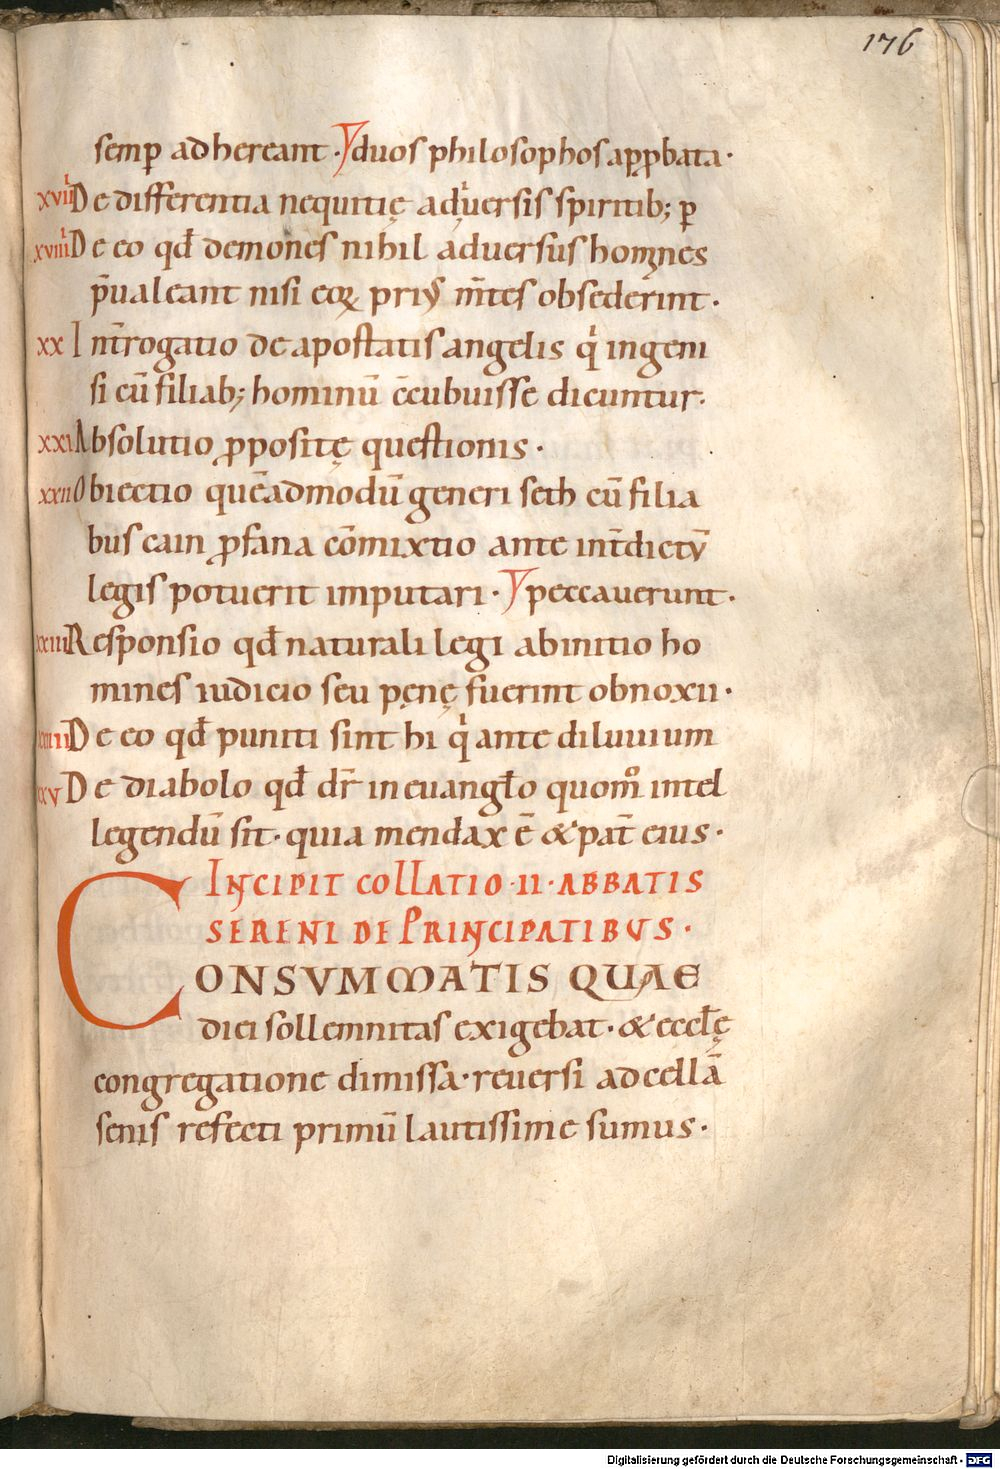 176
semp̄ adhereant · p̱ duos philosophos app̱bata·
xviii De differentia nequitię adu̓ersis spiritib; p̄
xviiii De eo qđ demones nihil aduersus homines
p̄ualeant nisi eoꝝ priꝰ m̄tes obsederint ·
xx Int̄rogatio de apostatis angelis qͥ ingeni
si cū filiab; hominū c̄cubuisse dicuntur·
xxi Absolutio ꝓpositę questionis ·
xxii Obiectio quēadmodū generi seth cū filia
bus cain ꝓfana cōmixtio ante int̄dictū
legis potuerit imputari · peccauerunt ·
xxiii Responsio qđ naturali legi abinitio ho
mines iudicio seu pęnę fuerint obnoxii ·
xxiiii De eo qđ puniti sint hi qͥ ante diluuium
xxv De diabolo qđ dr̄ in euangło quom̊ intel
legendū sit · quia mendax ē & pat̄ eius ·
INCIPIT COLLATIO · II · ABBATIS
SERENI DE PRINCIPATIBUS ·
CONSVMMATIS QUAE
diei sollemnitas exigebat · & eccłę
congregatione dimissa · reuersi ad cellā
senis refecti primū lautissime sumus ·
Digitalisierung gefördert durch die Deutsche Forschungsgemeinschaft - DFG